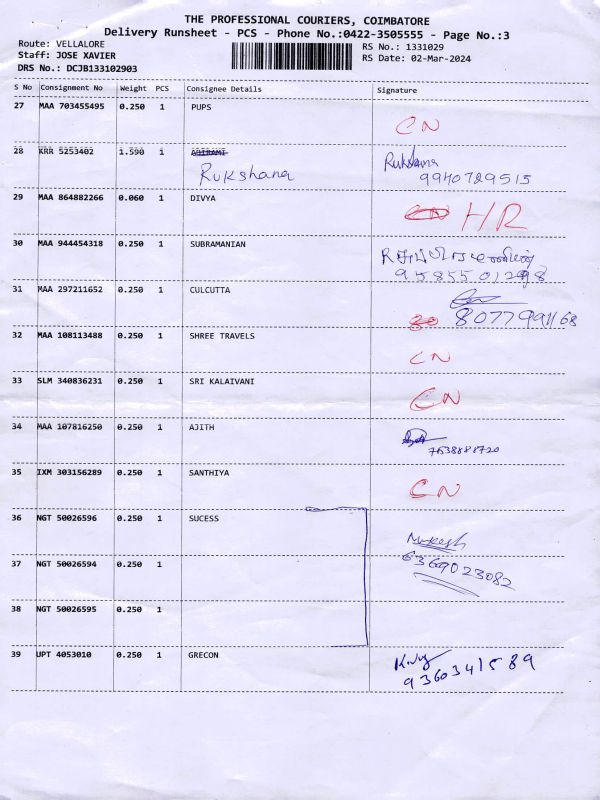 THE PROFESSIONAL COURIERS, COIMBATORE
Delivery Runsheet - PCS - Phone No.:0422-3505555 - Page No.:3
Route: VELLALORE
Staff: JOSE XAVIER
DRS No.: DCJB133102903
RS No.: 1331029
RS Date: 02-Mar-2024
S No Consignment No Weight PCS Consignee Details Signature
27 MAA 703455495 0.250 1 PUPS
CN
28 KRR 5253402 1.590 1 ABIRAMI Rukshana
Rukshana 9940729515
29 MAA 864882266 0.060 1 DIVYA
CN HR
30 MAA 944454318 0.250 1 SUBRAMANIAN
31 MAA 297211652 0.250 1 CULCUTTA
32 MAA 108113488 0.250 1 SHREE TRAVELS
CN
33 SLM 340836231 0.250 1 SRI KALAIVANI
CN
34 MAA 107816250 0.250 1 AJITH
35 IXM 303156289 0.250 1 SANTHIYA
CN
36 NGT 50026596 0.250 1 SUCESS
Mukesh
6369023082
37 NGT 50026594 0.250 1
38 NGT 50026595 0.250 1
39 UPT 4053010 0.250 1 GRECON
9360341589